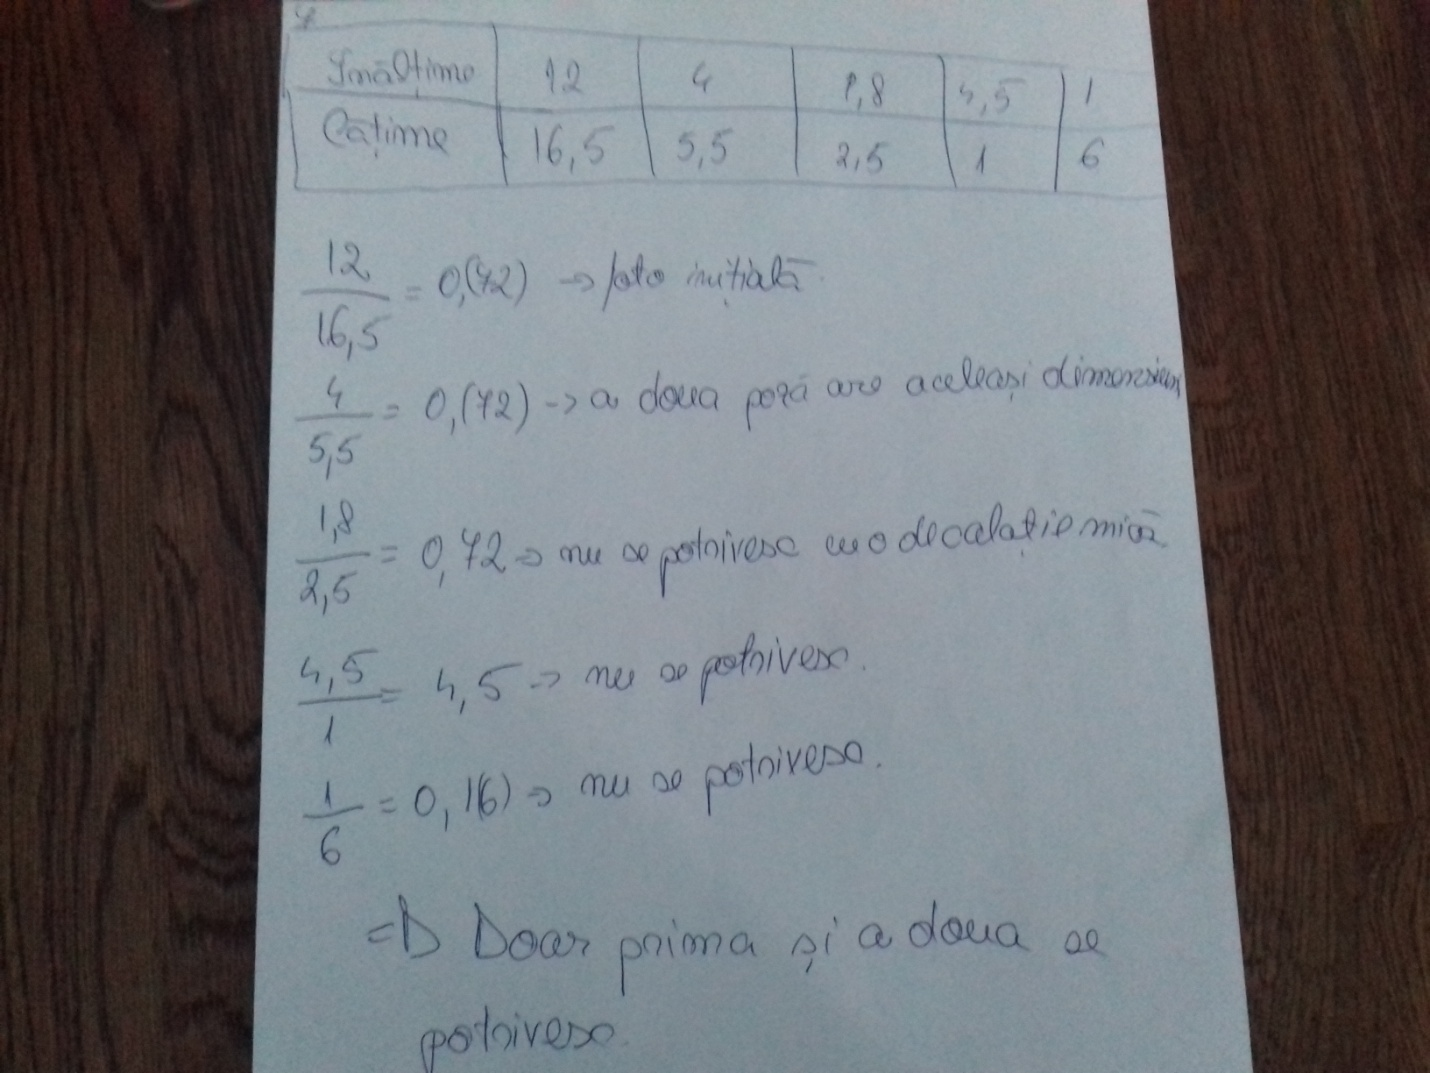 Înălțime 12 4 1,8 4,5 1
Lățime 16,5 5,5 2,5 1 6
12/16,5 = 0,(72) -> foto inițială.
4/5,5 = 0,(72) -> a doua poză are aceleași dimensiuni
1,8/2,5 = 0,72 => nu se potrivesc cu o decalație mică
4,5/1 = 4,5 => nu se potrivesc.
1/6 = 0,16) => nu se potrivesc.
=D Doar prima și a doua se
potrivesc